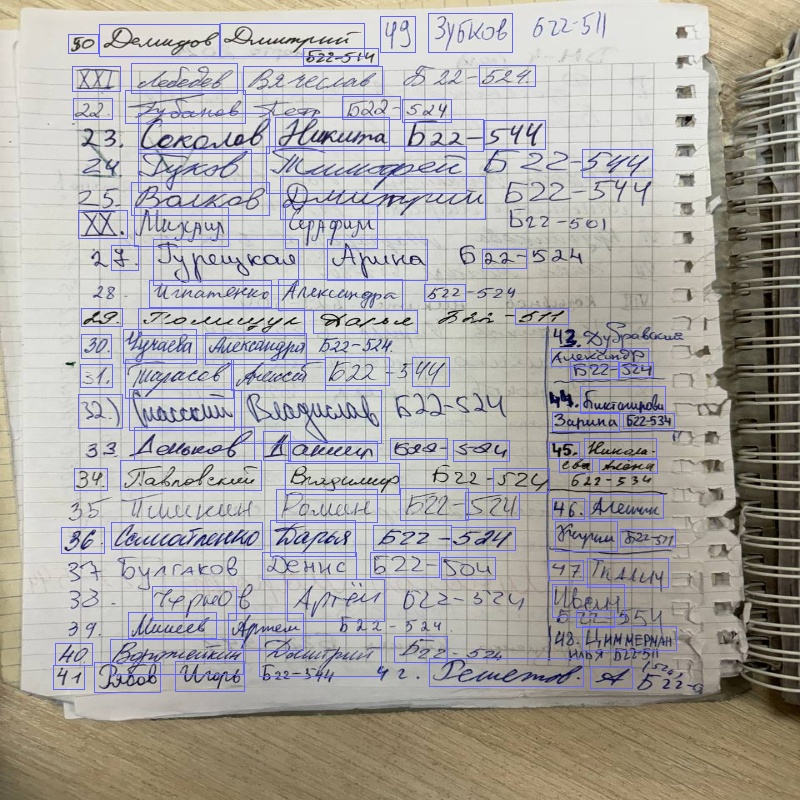 50 Демидов Дмитрий 49 Зубков Б22-511
Б22-514
XXI Лебедев Вячеслав Б22-524.
22. Губанов Петр Б22-524
23. Соколов Никита Б22-544
24. Гуков Тимофей Б22-544
25. Волков Дмитрий Б22-544
XX. Михаил Серафим Б22-501
27. Гурецкая Арина Б22-524
28. Игнатенко Александра Б22-524
29. Полищук Дарья Б22-511
30. Чучаева Александра Б22-524.
31. Тарасов Алексей Б22-544
32.) Спасский Владислав Б22-524
33. Деньков Даниил Б22-524
34. Павловский Владимир Б22-524
35 Пишкин Роман Б22-524
36. Самойленко Дарья Б22-524
37 Булгаков Денис Б22-504
38. Чернов Артём Б22-524
39. Мишеев Артем Б22-524.
40. Ворожейкин Дмитрий Б22-524
41 Рябов Игорь Б22-544 42. Решетов. А Б22-
43. Дубравский
Александр
Б22-524
44. Биктагирова
Зарина Б22-534
45. Никола-
ева Алена
Б22-534
46. Алешин
Кирилл Б22-511
47 Ткалич
Иван
Б22-554
48. Циммерман
Илья Б22-511